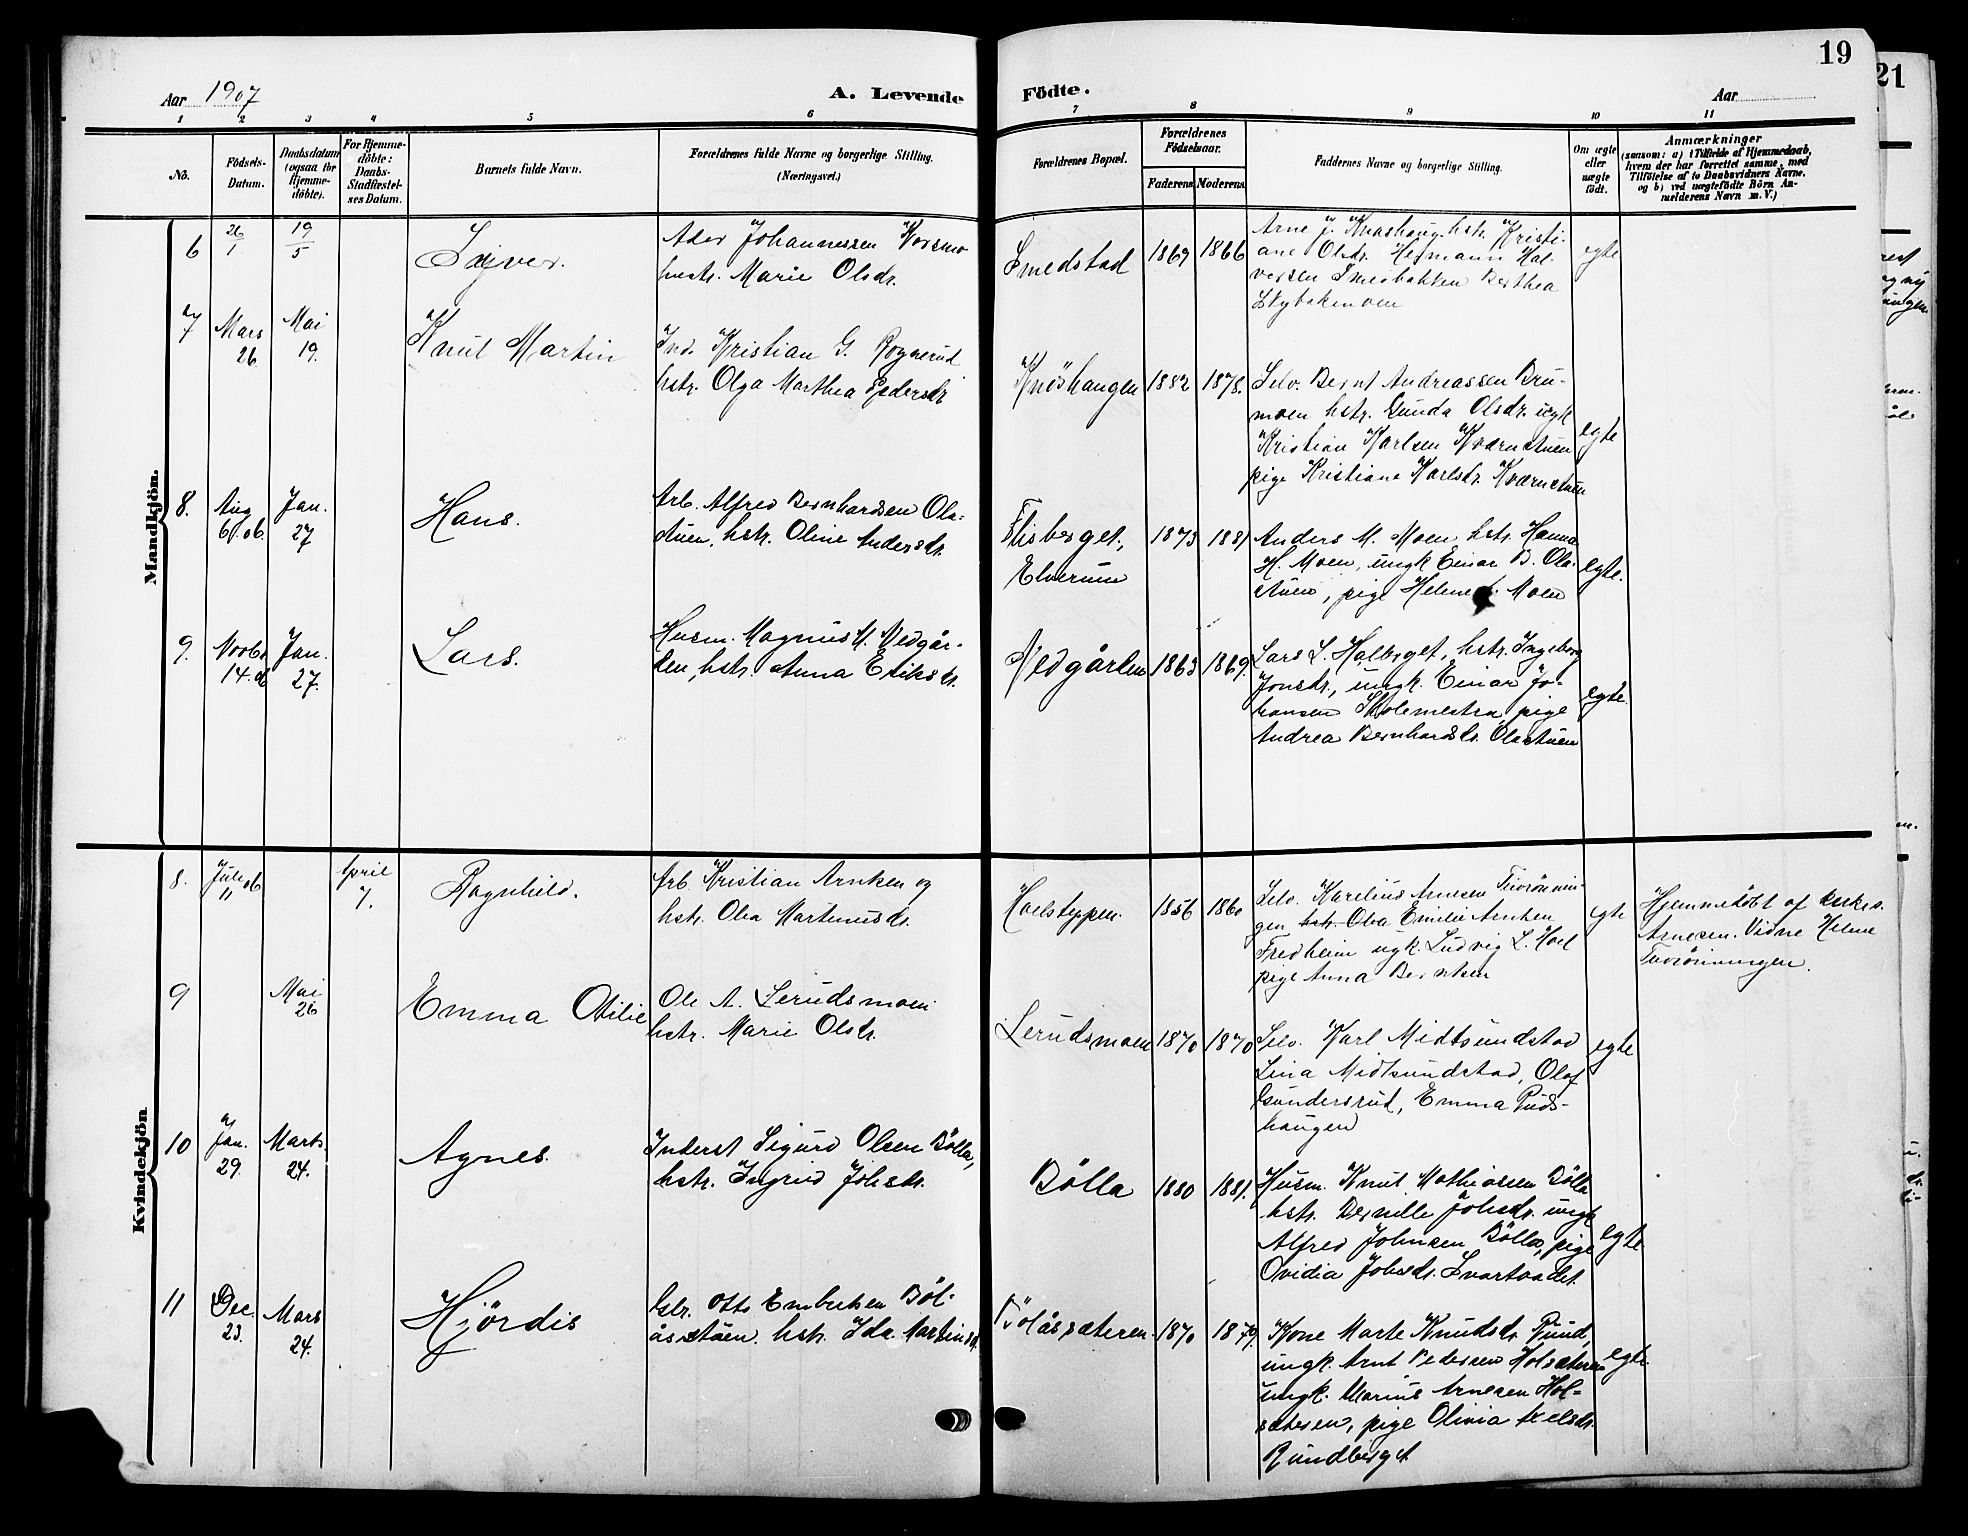 19
21
Aar 1907
A. Levende
Födte.
Aar
1 2 3 4 5 6 7 8 9 10 11
Nô.
Födsels-
Datum.
Daabsdatum
(ogsaa for
Hjemme-
döbte).
For Hjemme-
döbte:
Daabs-
Stadfæstel-
ses Datum.
Barnets fulde Navn.
Forældrenes fulde Navne og borgerlige Stilling.
(Næringsvei.)
Forældrenes Bopæl.
Forældrenes
Födselsaar.
Faderens
Moderens
Faddernes Navne og borgerlige Stilling.
Om ægte
eller
uægte
födt.
Anmærkninger
(saasom: a) i Tilfælde af Hjemmedaab,
hvem der har forrettet samme, med
Tilföielse af to Daabsvidners Navne.
og b) ved uægtefödte Börn An-
melderens Navn m. V.)
Mandkjön.
6
26/1
19/5
Johannessen Korsmo
hustr. Marie Olsdr.
Smedstad
1869
1866
Arne J. hstr. Kristi-
ane Olsdr. Hermann Hal-
versen Smesbakken Berthea
egte
7
Mars
26
Mai
19.
Knut Martin
Ind. Kristian G. Rognerud
hstr. Olga Marthea Pedersdr
Knöshaugen
1882
1878.
Selv. Bernt Andreassen Bru-
moen hstr. Gunda Olsdr. ugk
Kristian Karlsen Kværnstuen
pige Kristiane Karlsdr. Kværnstuen
egte
8.
Aug
6. 06.
Jan.
27
Hans.
Arb. Alfred Bernhardsen Ola-
stuen, hstr. Oline Andersdr.
Flisberget,
Elverum
1873
1881
Anders M. Moen hstr. Hanna
H. Moen, ungk Einar B. Ola-
stuen, pige Helene Moen
egte.
9.
Novbr
14. 06
Jan.
27.
Lars.
Husm. Magnus M. Nedgår-
den, hstr. Anna Eriksdr.
Nedgården
1863
1869.
Lars L. Halberget, hstr. Ingeborg
Jonsdr., ungk. Einar Jo-
hansen Skolemestra, pige
Andrea Bernhardsdr. Olastuen
egte.
Kvindekjön.
8.
Juli 06
11
April
7.
Ragnhild.
Arb. Kristian Arntsen og
hstr. Olea Martinusdr.
Hoelsteppen.
1856
1860
Selv. Karelius Arnesen
gen hstr. Olea Emilie Arntsen
Fredheim ugk. Ludvig L. Hoel
pige Anna Berntsen
egte
Hjemmedöbt af kirkes.
Arnesen. Vidne Helene
9
Mai
26
Emma Otilie
Ole A. Lerudsmoen
hstr. Marie Olsdr.
Lerudsmoen
1870
1870
Selv. Karl Midtsundstad
Lina Midtsundstad, Olaf
Gundersrud, Emma Ruds-
haugen
egte
10
Jan.
29.
Marts
24.
Agnes.
Inderst Sigurd Olsen Bölla,
hstr. Ingrid Johsdr.
Bölla
1880
1881.
Husm. Knut Mathiasen Bölla
hstr. Pernille Johsdr. ungk
Alfred Johnsen Bölla, pige
Ovidia Johsdr. Svartaadet
egte
11
Dec.
23.
Mars
24.
Hjördis
Gbr. Otto Embretsen Böl-
åsståen hstr. Ida Martinsd.
Bölåssæteren.
1870
1879.
Kone Marte Knudsdr. Rund,
ungk. Arnt Pedersen Holsæteren
ungk. Marius Arnesen Hol-
sæteren, pige Olivia Axelsdr.
Rundberget
egte.